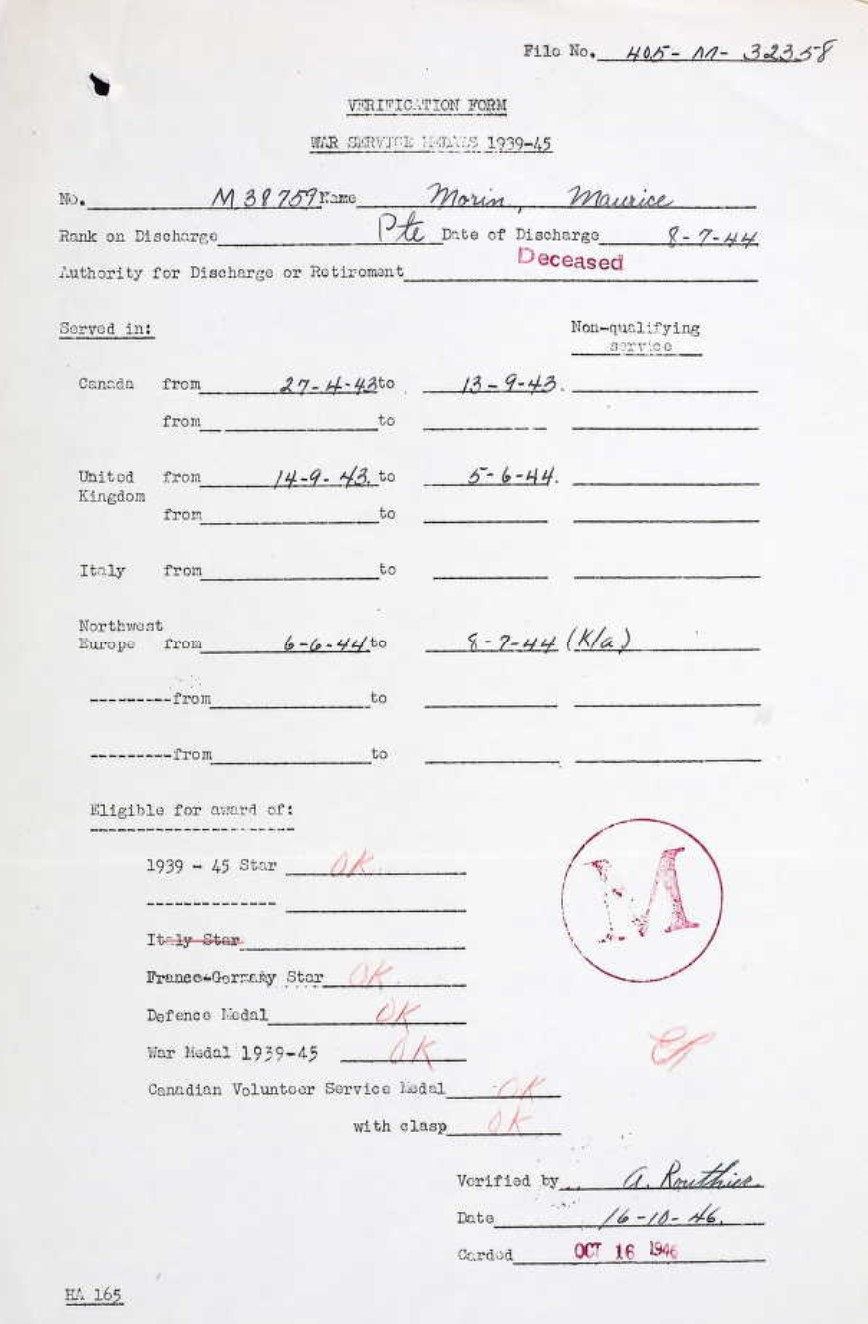 File No. 405-M-32358
VERIFICATION FORM
WAR SERVICE MEDALS 1939-45
No. M 38759 Name Morin, Maurice
Rank on Discharge Pte Date of Discharge 8-7-44
Deceased
Authority for Discharge or Retirement
Served in: Non-qualifying
service
Canada from 27-4-43 to 13-9-43.
from to
United from 14-9-43. to 5-6-44.
Kingdom
from to
Italy from to
Northwest
Europe from 6-6-44 to 8-7-44 (K/a)
---------from to
---------from to
Eligible for award of:
1939 - 45 Star OK
Italy Star
France-Germany Star OK
Defence Medal OK
War Medal 1939-45 OK
Canadian Volunteer Service Medal OK
with clasp OK
M
Verified by A. Routhier
Date 16-10-46.
Carded OCT 16 1946
HA 165